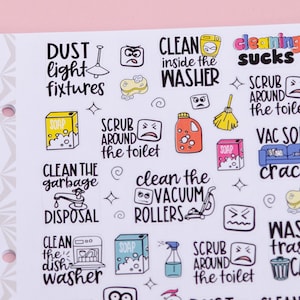 DUST
light
fixtures
CLEAN
inside the
WASHER
cleaning
sucks
SOAP
SCRUB
AROUND
the toilet
SCRUB
AROUND
the toilet
SOAP
VAC
CLEAN THE
garbage
DISPOSAL
clean the
VACUUM
ROLLERS
CLEAN
the
dish
washer
SOAP
SCRUB
AROUND
the toilet